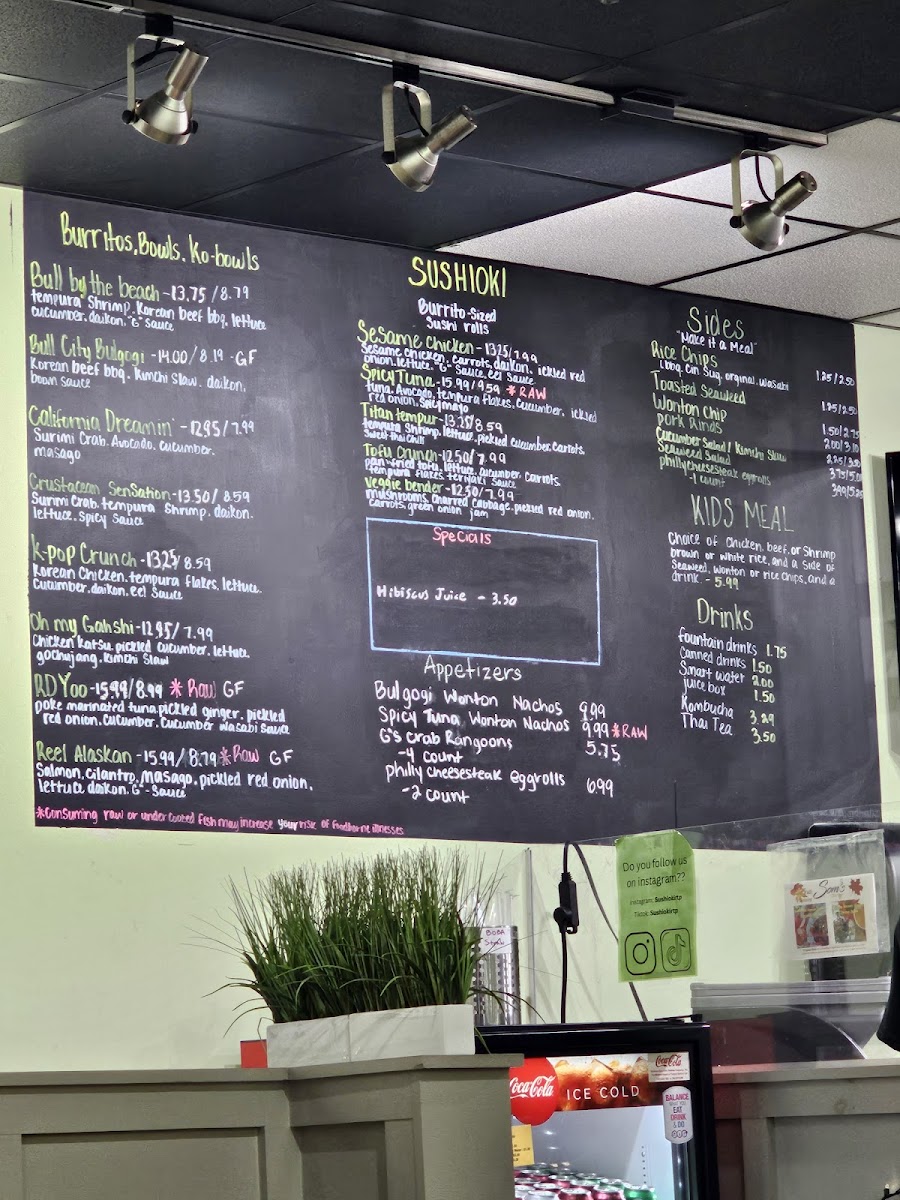 Burritos, Bowls, Ko-bowls
Bull by the beach - 13.75 / 8.79
tempura Shrimp, Korean beef bbq, lettuce
cucumber, daikon, "G" Sauce
Bull City Bulgogi - 14.00 / 8.19 - GF
Korean beef bbq, Kimchi Slaw, daikon,
boom sauce
California Dreamin' - 12.95 / 7.99
Surimi Crab, Avocado, cucumber,
masago
Crustacean Sensation - 13.50 / 8.59
Surimi Crab, tempura Shrimp, daikon,
lettuce, Spicy Sauce
K-pop Crunch - 13.25 / 8.59
Korean Chicken, tempura flakes, lettuce,
cucumber, daikon, eel Sauce
Oh my Gahshi - 12.95 / 7.99
Chicken katsu, pickled cucumber, lettuce,
gochujang, kimchi Slaw
RD Yoo - 15.99 / 8.99 * Raw GF
poke marinated tuna, pickled ginger, pickled
red onion, cucumber, cucumber wasabi Sauce
Reel Alaskan - 15.99 / 8.79 * Raw GF
Salmon, cilantro, masago, pickled red onion,
lettuce daikon, "G"- Sauce
*Consuming raw or under cooked fish may increase your risk of foodborne illnesses
SUSHIOKI
Burrito-Sized
Sushi rolls
Sesame Chicken - 13.25 / 7.99
Sesame chicken, carrots, daikon, ickled red
onion, lettuce, "G" Sauce, eel Sauce
Spicy Tuna - 15.99 / 9.59 * RAW
tuna, Avocado, tempura flakes, cucumber, ickled
red onion, Spicy mayo
Titan tempur - 13.25 / 8.59
tempura Shrimp, lettuce, pickled cucumber, carrots,
Sweet thai chili
Tofu Crunch - 12.50 / 7.99
pan-fried tofu, lettuce, cucumber, carrots,
tempura flakes, teriyaki Sauce
Veggie bender - 12.50 / 7.99
mushrooms, charred cabbage, pickled red onion,
carrots, green onion jam
Specials
Hibiscus Juice - 3.50
Appetizers
Bulgogi Wonton Nachos 9.99
Spicy Tuna Wonton Nachos 9.99 * RAW
G's Crab Rangoons 5.75
-4 count
philly cheesesteak eggrolls 6.99
-2 count
Sides
"Make it a Meal"
Rice Chips 1.25 / 2.50
(bbq, Cin Sug, orginal, wasabi
Toasted Seaweed 1.25 / 2.50
Wonton Chip 1.50 / 2.75
Pork Rinds 2.00 / 3.10
Cucumber Salad / Kimchi Slaw
Seaweed Salad
phillycheesesteak eggrolls
-1 count
KIDS MEAL
Choice of Chicken, beef, or Shrimp
brown or white rice, and a Side of
Seaweed, Wonton or rice chips, and a
drink. - 5.99
Drinks
fountain drinks 1.75
Canned drinks 1.50
Smart water 2.00
juice box 1.50
Kombucha 3.29
Thai Tea 3.50
Do you follow us
on instagram??
Instagram: Sushiokirtp
Tiktok: Sushiokirtp
BOBA
Som's
Coca-Cola
ICE COLD
Coca-Cola
BALANCE
WHAT YOU
EAT
DRINK
& DO